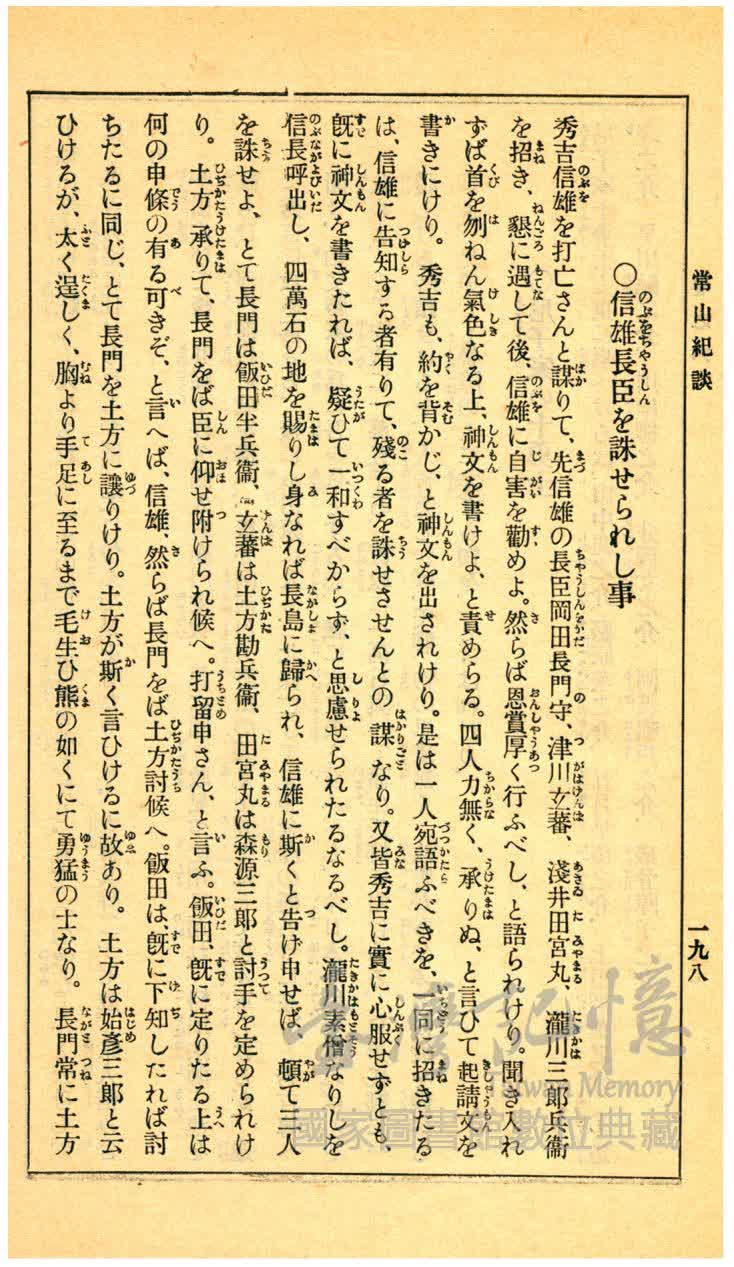 常山紀談
一九八
〇信雄長臣を誅せられし事
秀吉信雄を打亡さんと謀りて、先信雄の長臣岡田長門守、津川玄蕃、淺井田宮丸、瀧川三郎兵衞
を招き、懇に遇して後、信雄に自害を勸めよ。然らば恩賞厚く行ふべし、と語られけり。聞き入れ
ずば首を刎ねん氣色なる上、神文を書けよ、と責めらる。四人力無く、承りぬ、と言ひて起請文を
書きにけり。秀吉も、約を背かじ、と神文を出されけり。是は一人宛語ふべきを、一同に招きたる
は、信雄に告知する者有りて、殘る者を誅せさせんとの謀なり。又皆秀吉に實に心服せずとも、
既に神文を書きたれば、疑ひて一和すべからず、と思慮せられたるなるべし。瀧川素僧なりしを
信長呼出し、四萬石の地を賜りし身なれば長島に歸られ、信雄に斯くと告げ申せば、頓て三人
を誅せよ、とて長門は飯田半兵衞、玄蕃は土方勘兵衞、田宮丸は森源三郎と討手を定められけ
り。土方承りて、長門をば臣に仰せ附けられ候へ。打留申さん、と言ふ。飯田、既に定りたる上は
何の申條の有る可きぞ、と言へば、信雄、然らば長門をば土方討候へ。飯田は、既に下知したれば討
ちたるに同じ、とて長門を土方に讓りけり。土方が斯く言ひけるに故あり。土方は始彥三郎と云
ひけるが、太く逞しく、胸より手足に至るまで毛生ひ熊の如くにて勇猛の士なり。長門常に土方
臺灣記憶
Taiwan Memory
國家圖書館數位典藏